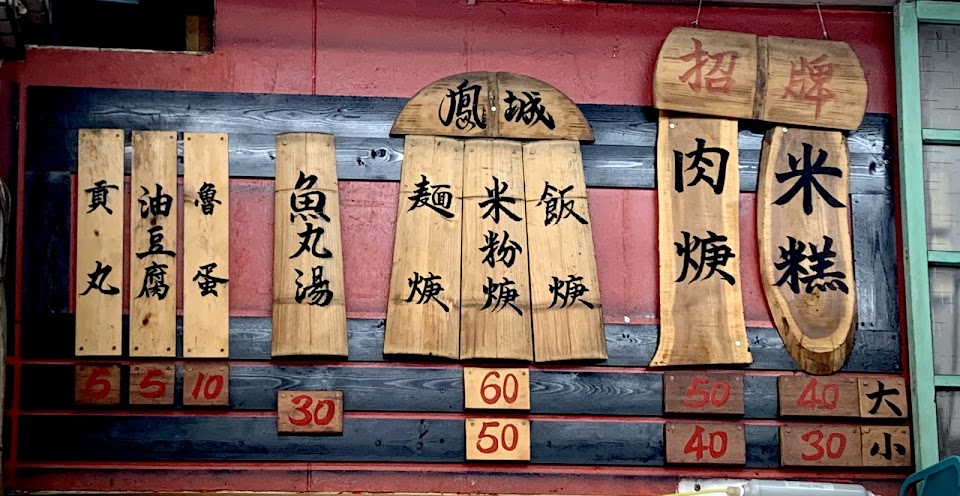 招牌
米糕
肉焿
鳳城
飯焿
米粉焿
麵焿
魚丸湯
魯蛋
油豆腐
貢丸
大
40
50
60
10
5
5
小
30
40
50
30